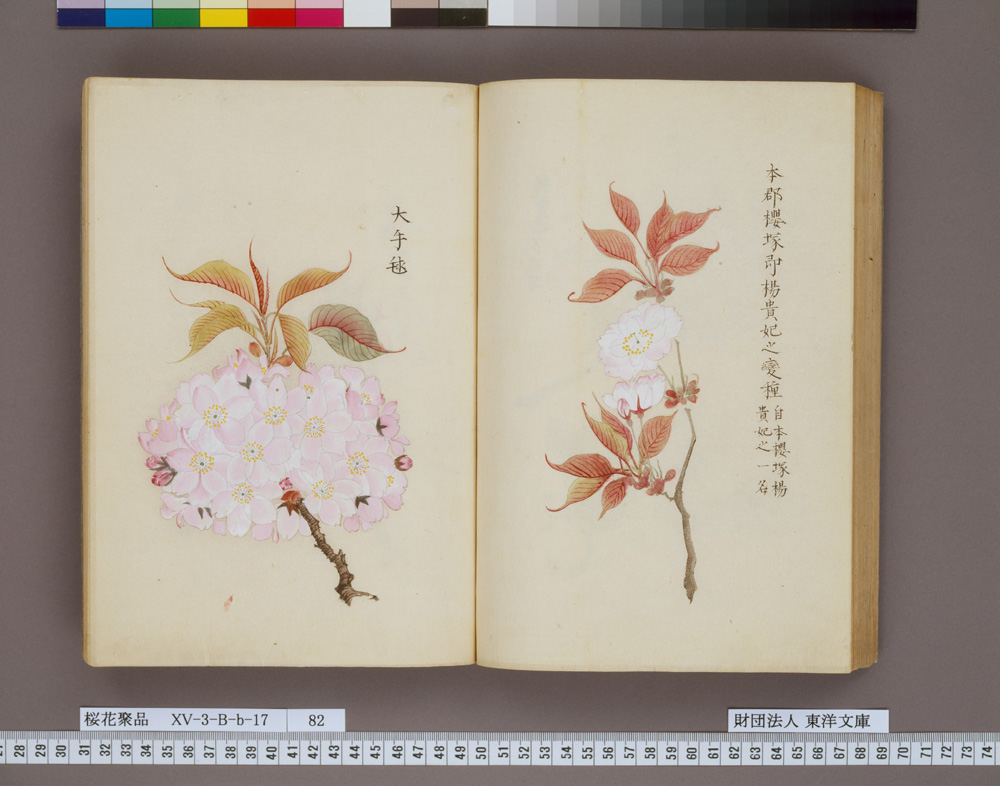 本郡櫻塚即楊貴妃之變種
自本櫻塚楊
貴妃之一名
大手毬
桜花聚品 XV-3-B-b-17 82
財団法人 東洋文庫
28 29 30 31 32 33 34 35 36 37 38 39 40 41 42 43 44 45 46 47 48 49 50 51 52 53 54 55 56 57 58 59 60 61 62 63 64 65 66 67 68 69 70 71 72 73 74